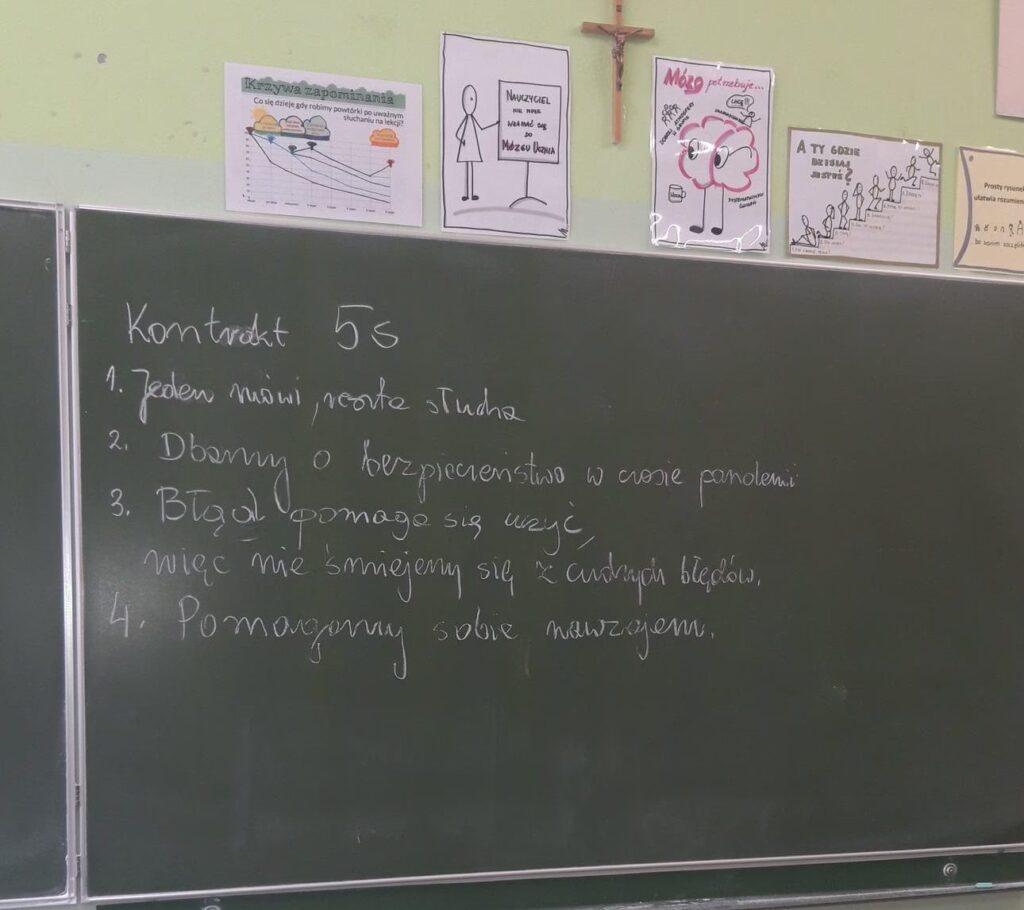 Krzywa zapominania
Co się dzieje gdy robimy powtórki po uważnym
słuchaniu na lekcji?
NAUCZYCIEL
NIE MOŻE
WŁAMAĆ SIĘ
DO
MÓZGU UCZNIA
MÓZG potrzebuje...
CHCĘ!!!
A TY GDZIE
DZISIAJ
JESTEŚ?
Prosty rysunek
ułatwia
Kontrakt 5s
1. Jeden mówi, reszta słucha
2. Dbamy o bezpieczeństwo w czasie pandemii
3. Błąd pomaga się uczyć,
więc nie śmiejemy się z cudzych błędów.
4. Pomagamy sobie nawzajem.